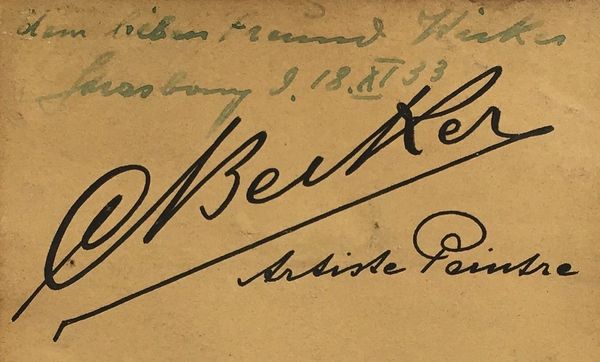 dem lieben Freund
Strasbourg d. 18. XI 33
Becker
Artiste Peintre